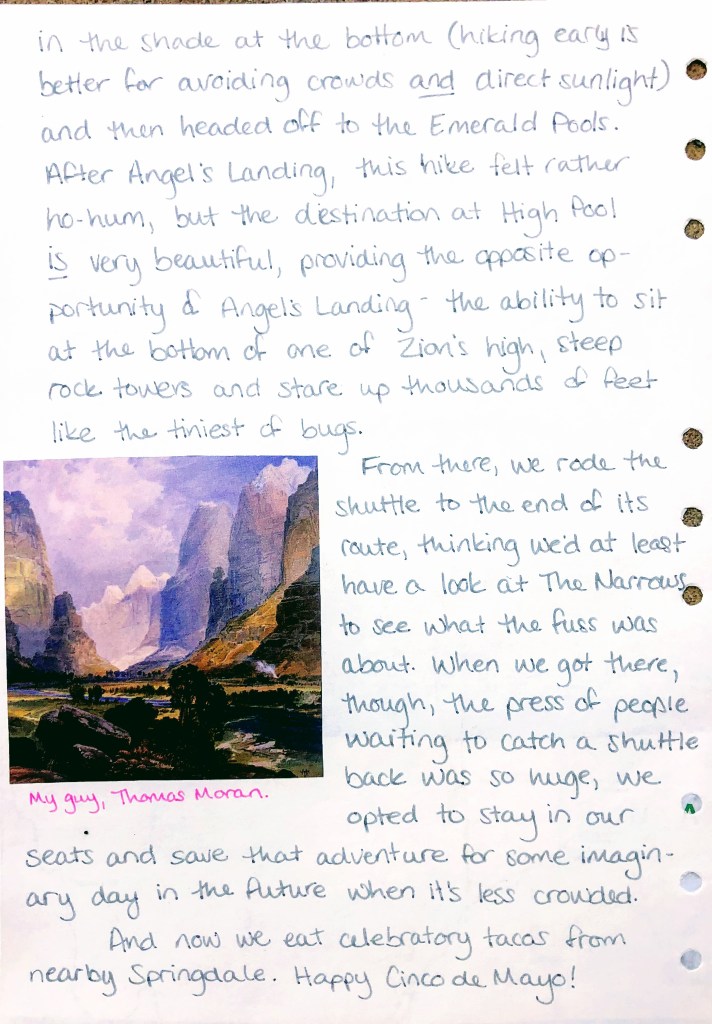 in the shade at the bottom (hiking early is
better for avoiding crowds and direct sunlight)
and then headed off to the Emerald Pools.
After Angel's Landing, this hike felt rather
ho-hum, but the destination at High Pool
is very beautiful, providing the opposite op-
portunity of Angel's Landing - the ability to sit
at the bottom of one of Zion's high, steep
rock towers and stare up thousands of feet
like the tiniest of bugs.
From there, we rode the
shuttle to the end of its
route, thinking we'd at least
have a look at The Narrows
to see what the fuss was
about. When we got there,
though, the press of people
waiting to catch a shuttle
back was so huge, we
opted to stay in our
seats and save that adventure for some imagin-
ary day in the future when it's less crowded.
And now we eat celebratory tacos from
nearby Springdale. Happy Cinco de Mayo!
My guy, Thomas Moran.